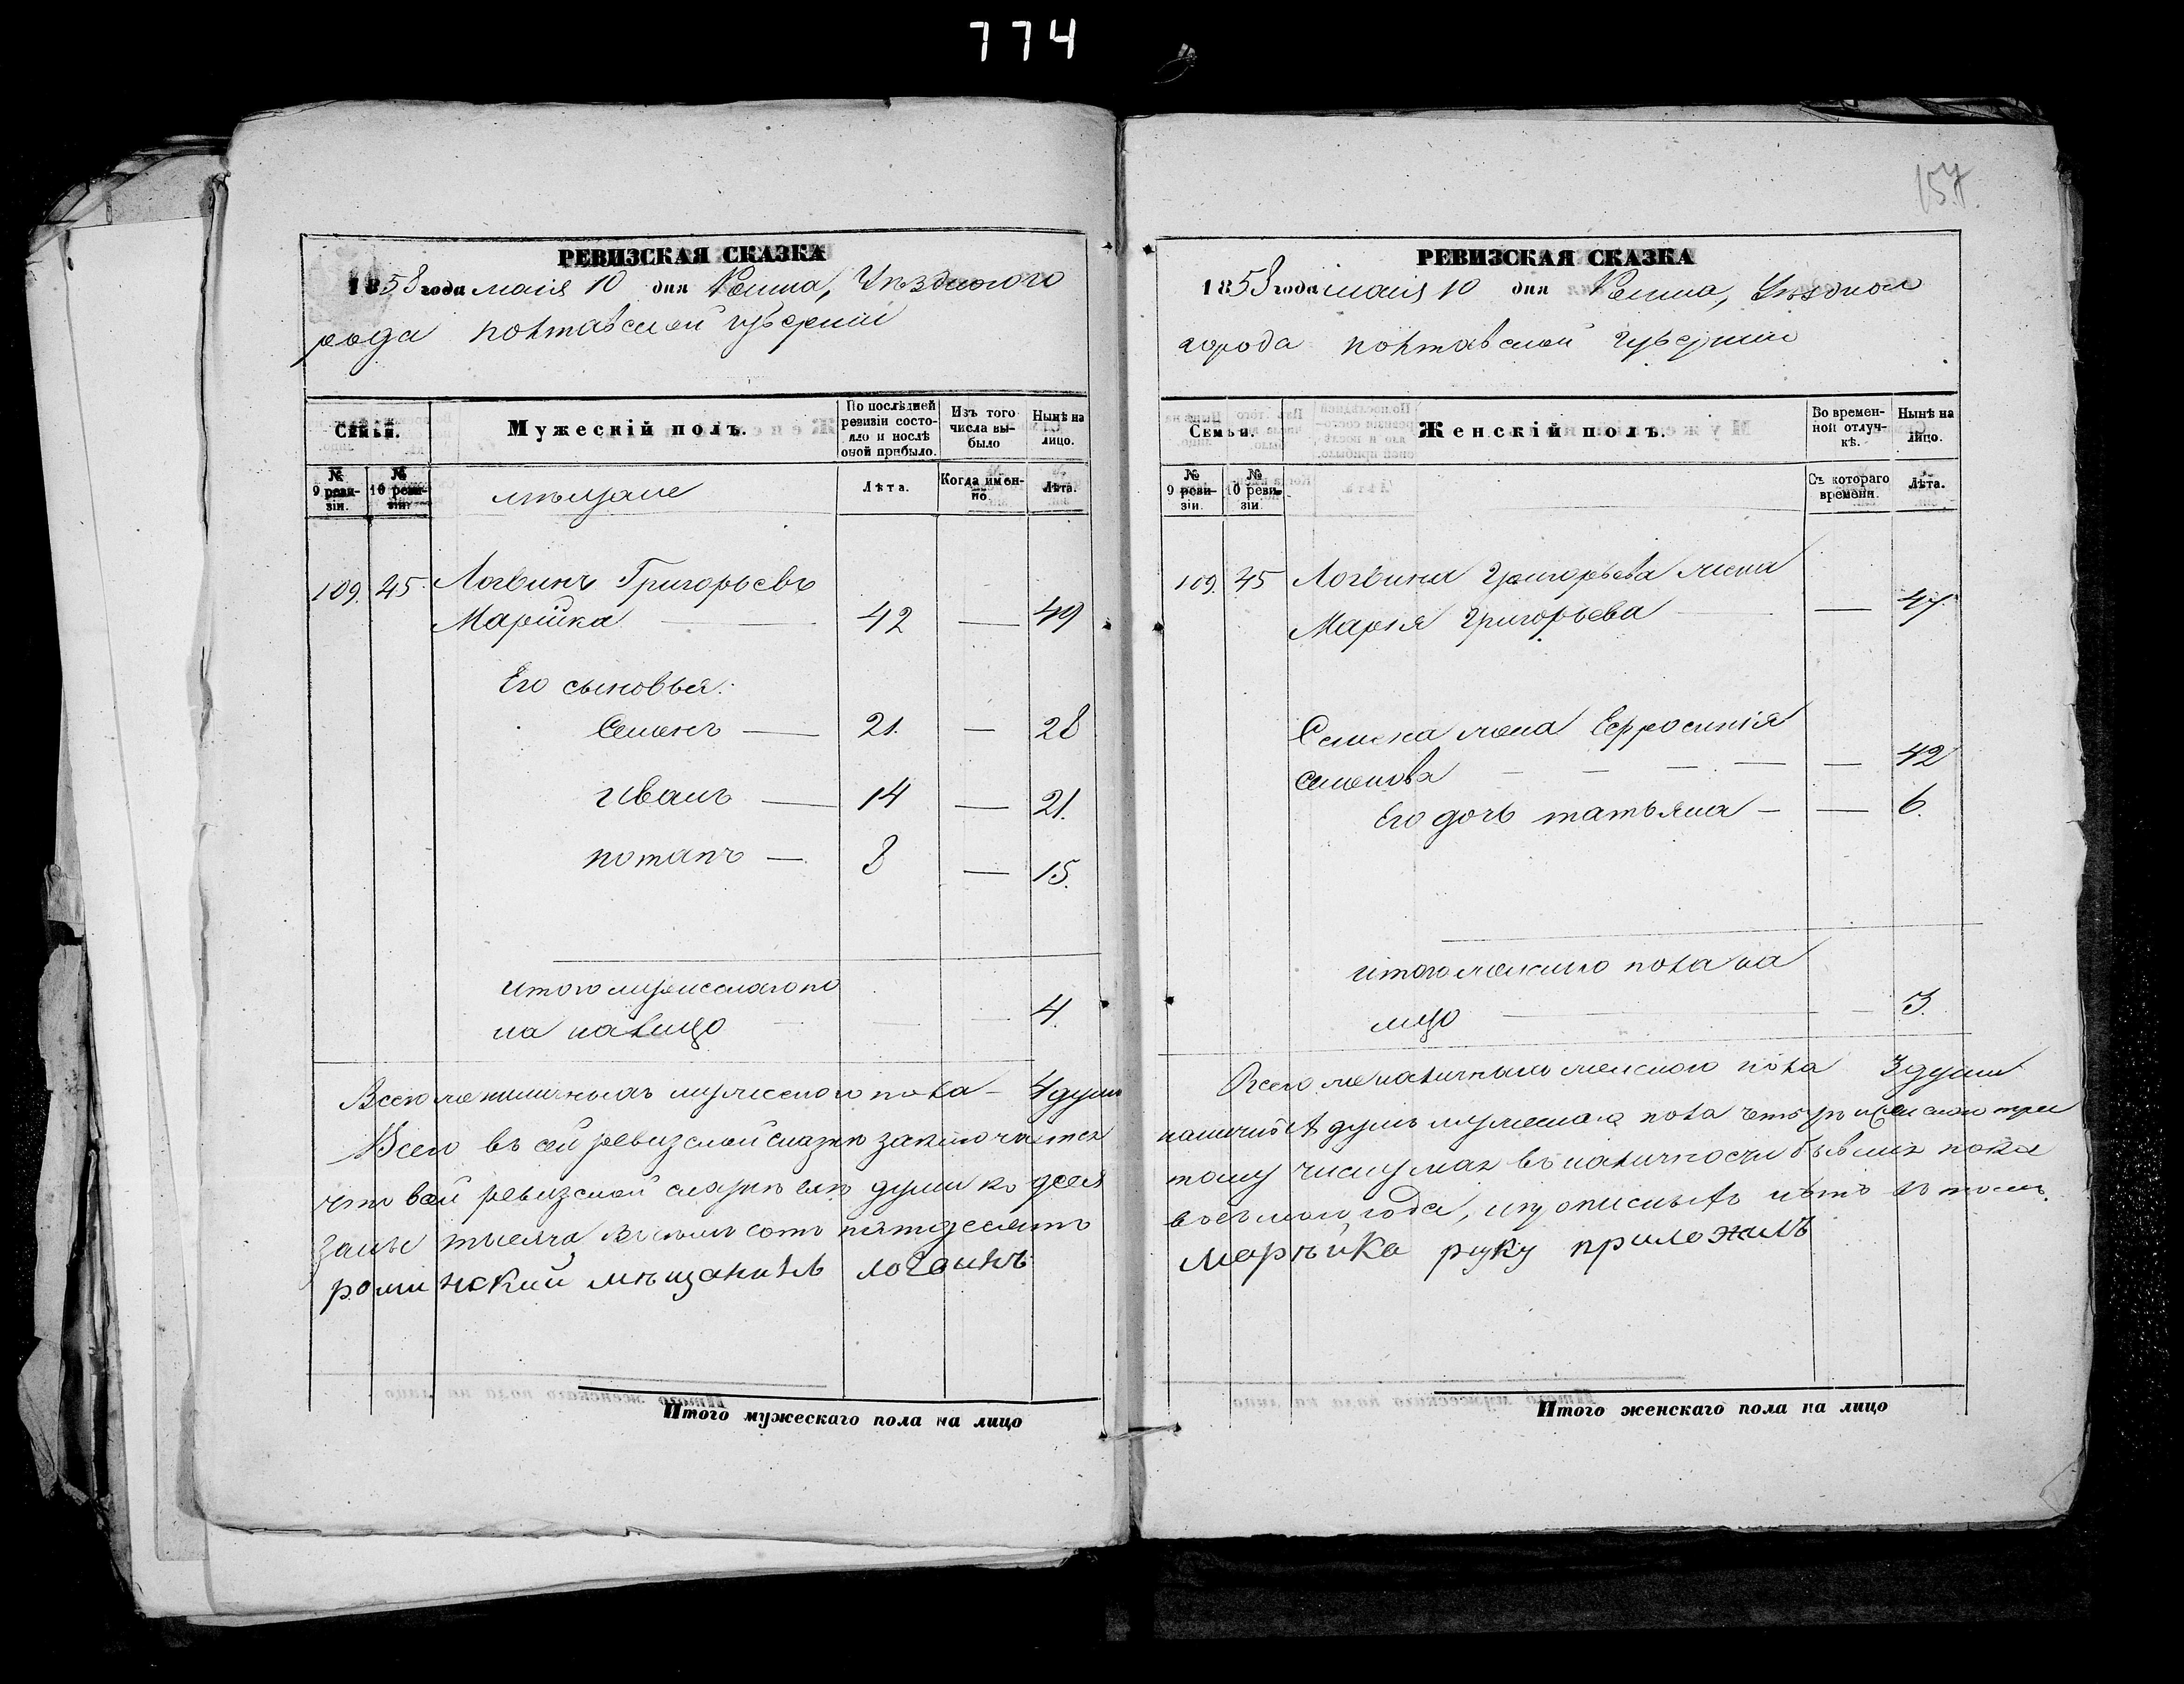 774
РЕВИЗСКАЯ СКАЗКА
1858 года маія 10 дня Ромна, Уѣзднаго го
рода полтавской губерніи
Семьи.
Мужескій полъ.
По послѣдней ревизіи состояло и послѣ оной прибыло.
Изъ того числа выбыло
Нынѣ на лицо.
№ 9 ревизіи.
№ 10 ревизіи.
мѣщане
Лѣта.
Когда именно.
Лѣта.
109. 45 Логвинъ Григорьевъ
Марѣйка — 42 — 49
Его сыновья:
Семенъ — 21. — 28
Иванъ — 14 — 21.
потапъ — 8 — 15.
итого мужескаго по
ла на лицо 4.
Всего наличныхъ мужескаго пола — 4 души
Всего въ сей ревизской сказке заключается
что в сей ревизской сказке все души ко дня
тысяча восемь сотъ пятдесятъ
роминский мѣщанинъ логвинъ
Итого мужескаго пола на лицо
157.
РЕВИЗСКАЯ СКАЗКА
1858 года маія 10 дня Ромна, Уѣзднаго
города полтавской губерніи
Семьи.
Женскій полъ.
Во временной отлучкѣ.
Нынѣ на лицо.
№ 9 ревизіи.
№ 10 ревизіи.
Съ котораго времени.
Лѣта.
109. 45 Логвина Григорьева жена
Марія Григорьева — 47.
Семена жена Ефросинія
Семенова — 42
Его дочь татьяна — — 6.
итого женскаго пола на
лицо — 3.
Всего наличныхъ женскаго пола 3 души
душъ мужескаго пола четыре женскаго три
тому числу въ наличности бывших пола
восьмого года, нѣтъ въ томъ.
марѣйка руку приложилъ
Итого женскаго пола на лицо